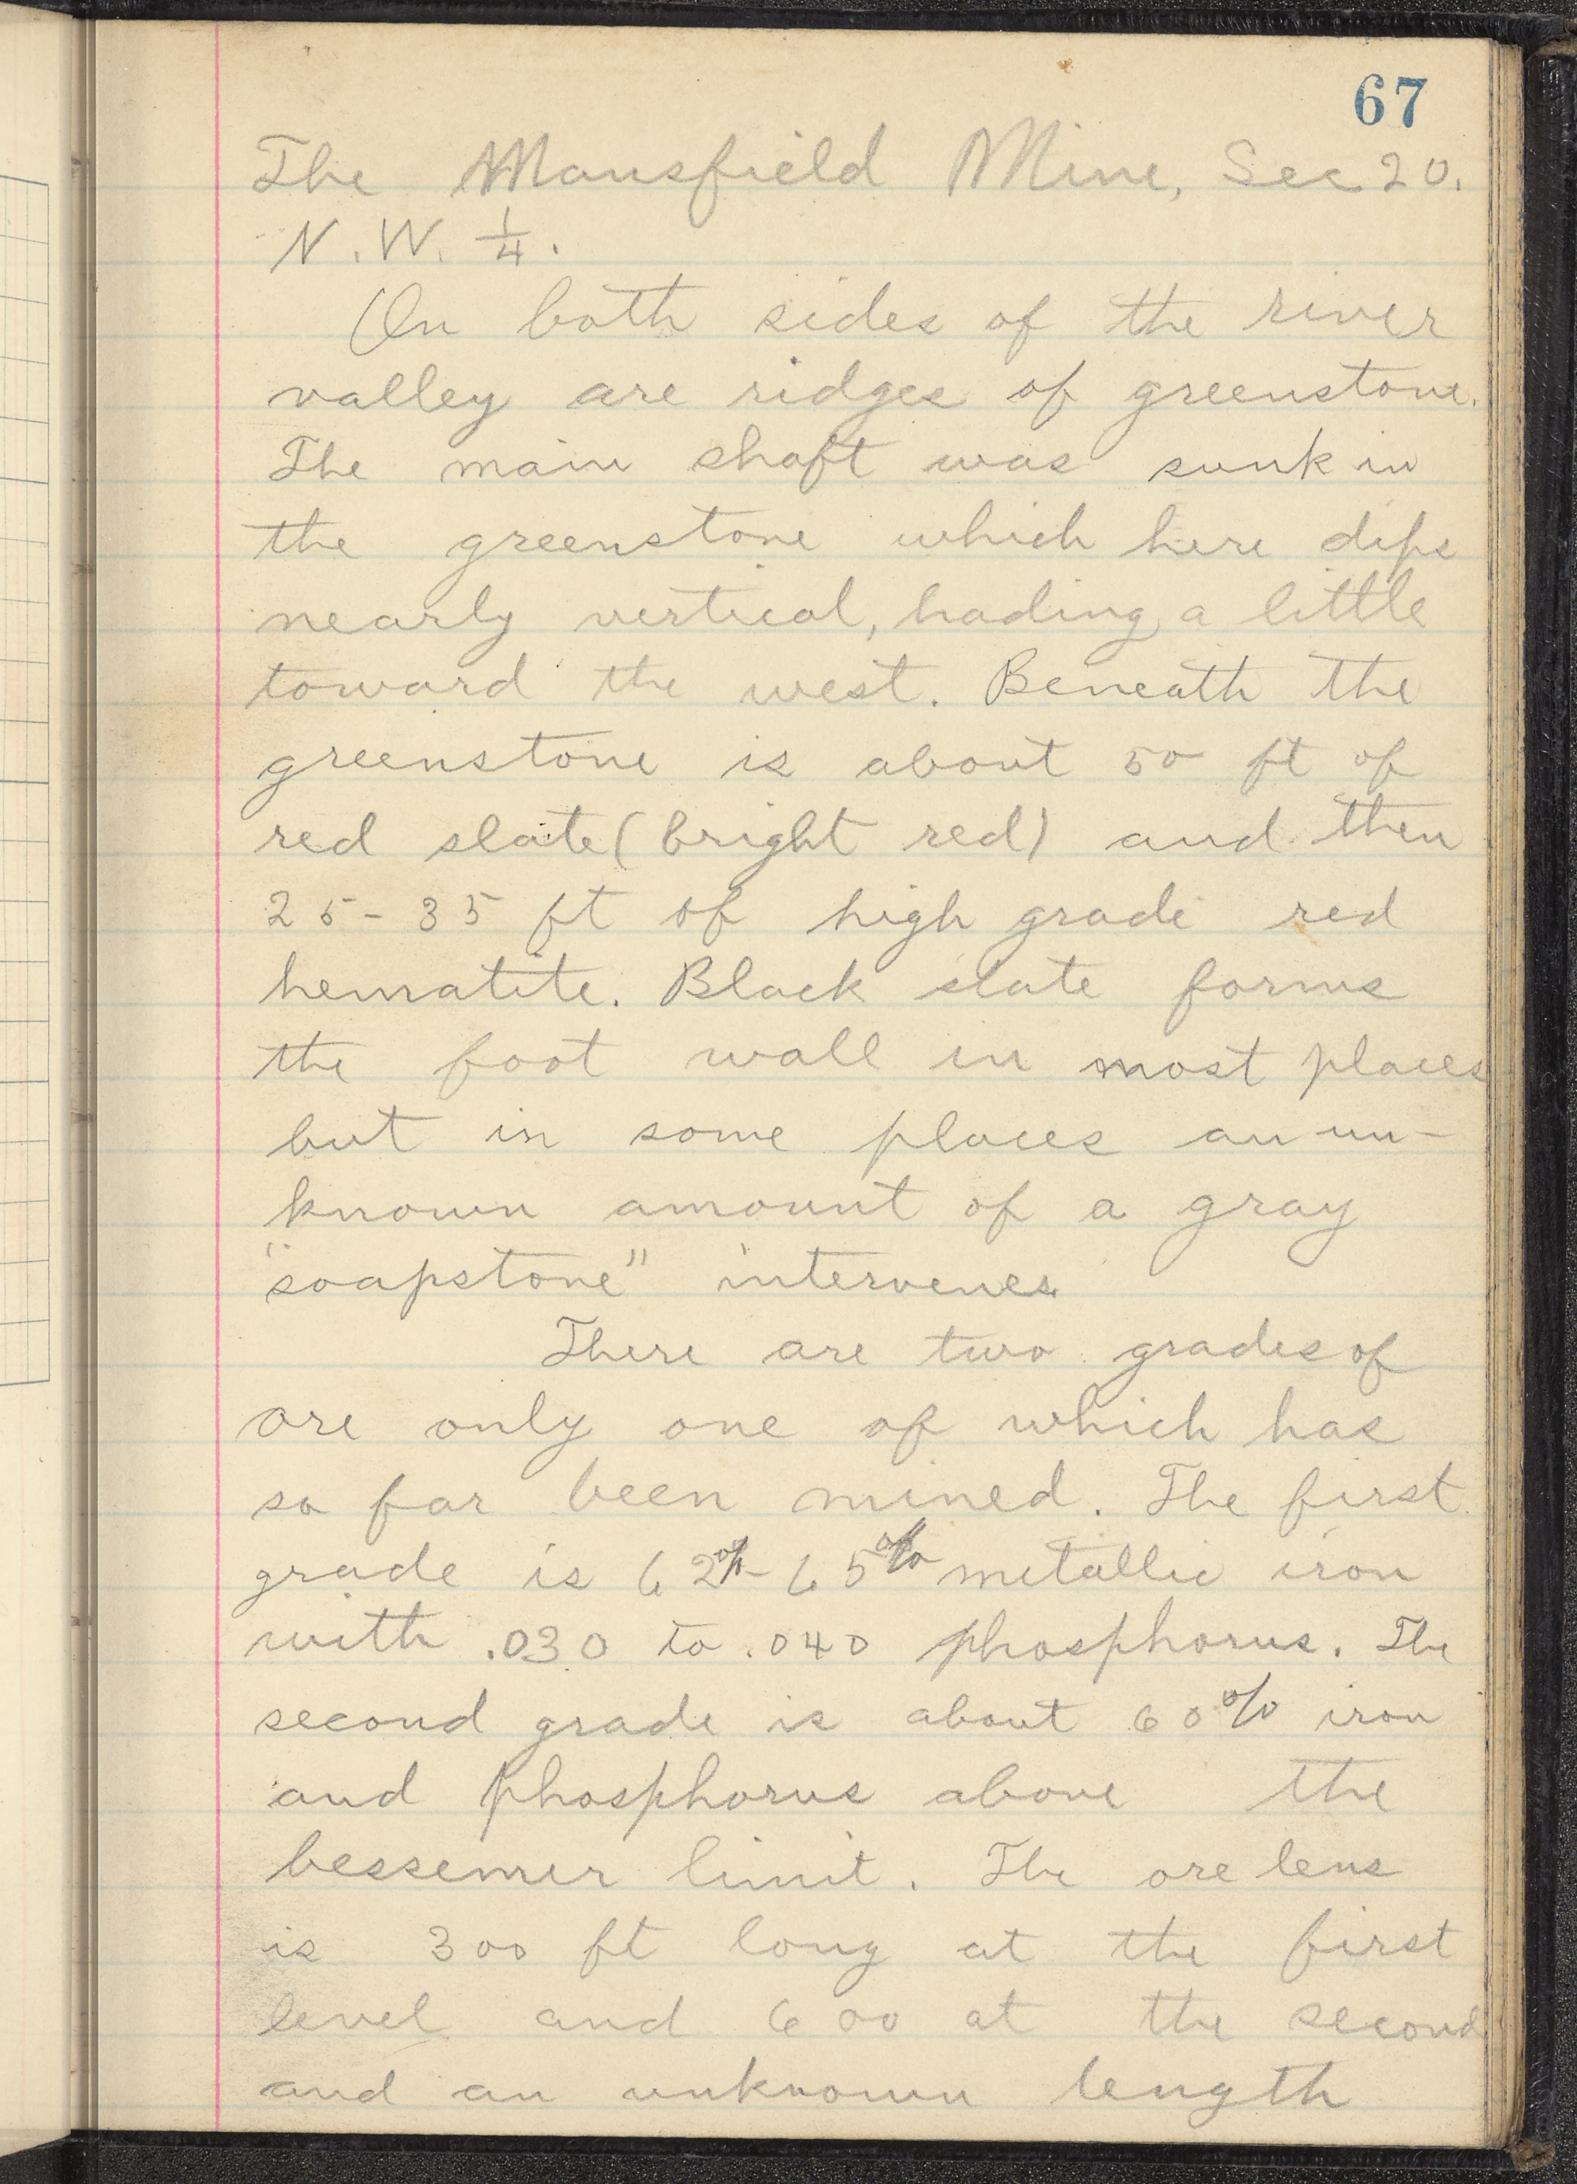 67
The Mansfield Mine, Sec 20.
N.W. 1/4.
On both sides of the river
valley are ridges of greenstone.
The main shaft was sunk in
the greenstone which here dips
nearly vertical, hading a little
toward the west. Beneath the
greenstone is about 50 ft of
red slate (bright red) and then
25-35 ft of high grade red
hematite. Black slate forms
the foot wall in most places
but in some places an un-
known amount of a gray
"soapstone" intervenes.
There are two grades of
ore only one of which has
so far been mined. The first
grade is 62%-65% metallic iron
with .030 to .040 phosphorus. The
second grade is about 60% iron
and phosphorus above the
bessemer limit. The ore lens
is 300 ft long at the first
level and 600 at the second
and an unknown length